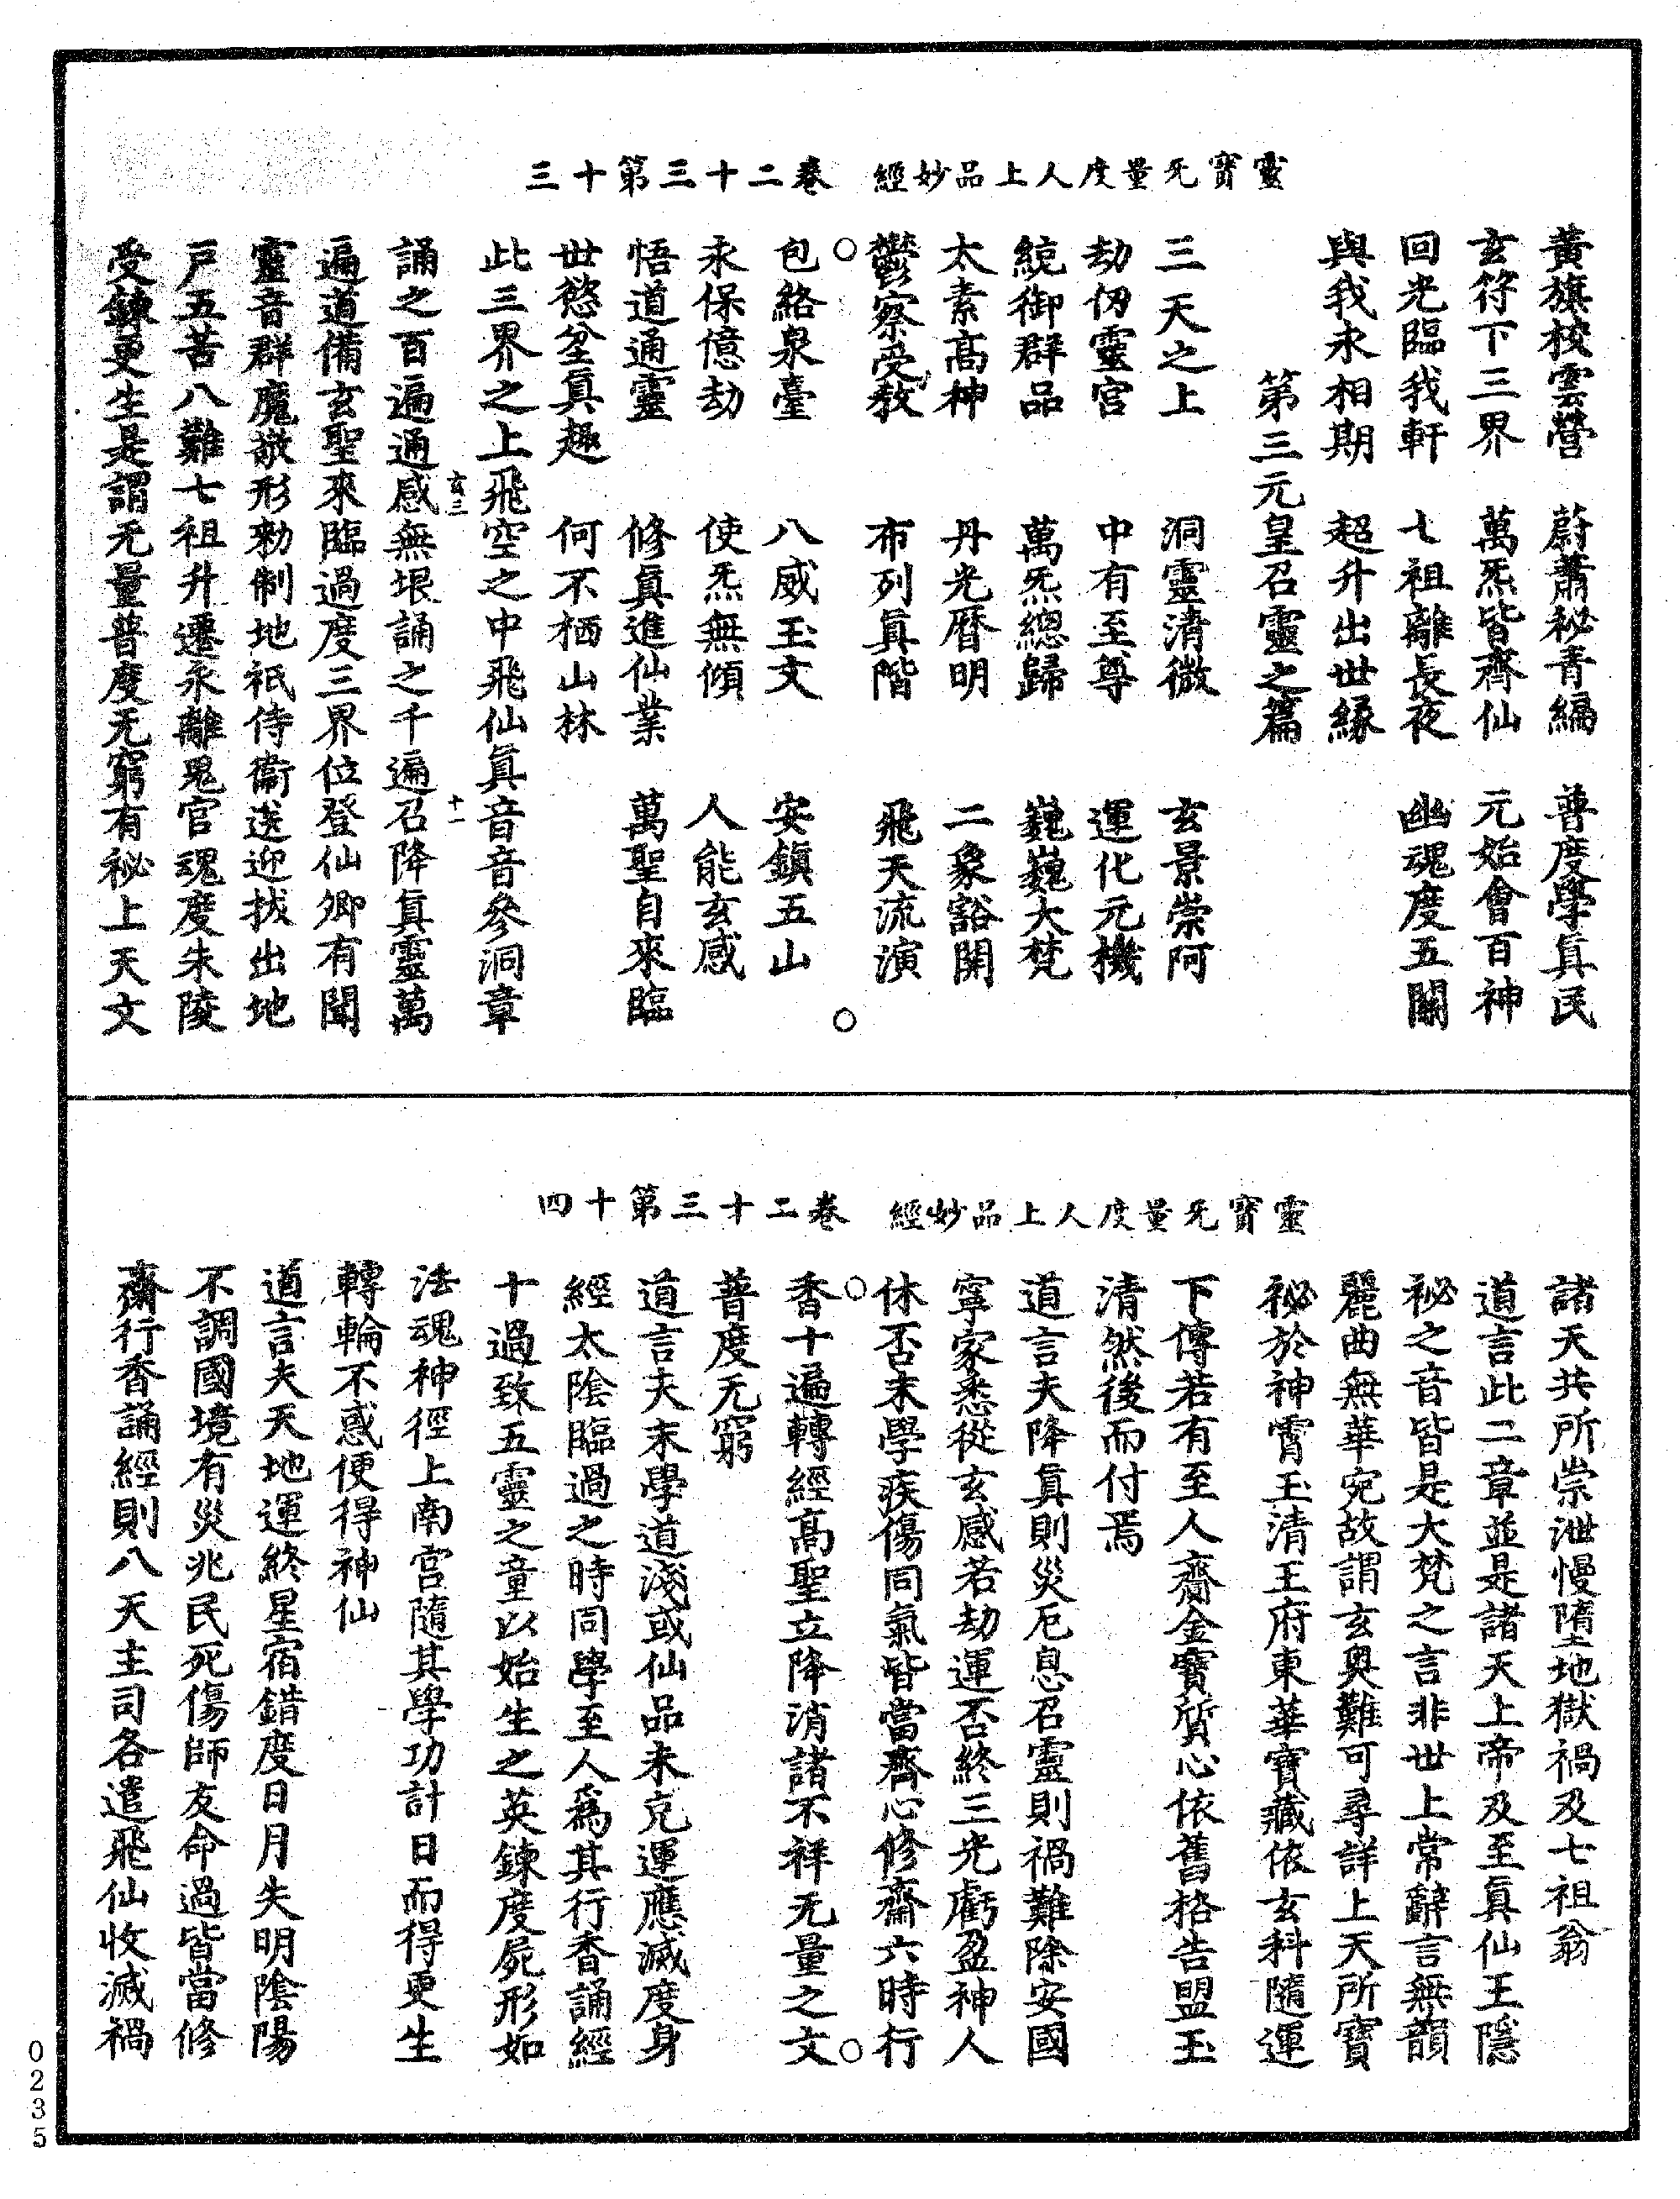 靈寶无量度人上品妙經　卷二十三第十三
黃旗校雲營　蔚蕭秘青編　普度學真民
玄符下三界　萬炁皆齊仙　元始會百神
回光臨我軒　七祖離長夜　幽魂度五關
與我永相期　超升出世緣
第三元皇召靈之篇
三天之上　洞靈清微　玄景崇阿
劫仞靈官　中有至尊　運化元機
統御群品　萬炁總歸　巍巍大梵
太素高神　丹光曆明　二象豁開
鬱察受教　布列真階　飛天流演
包絡泉臺　八威玉文　安鎮五山
永保億劫　使炁無傾　人能玄感
悟道通靈　修真進仙業　萬聖自來臨
世慾坌真趣　何不栖山林
此三界之上飛空之中飛仙真音音參洞章
玄三　十一
誦之百遍通感無垠誦之千遍召降真靈萬
遍道備玄聖來臨過度三界位登仙卿有聞
靈音群魔敬形勑制地祇侍衞送迎拔出地
戶五苦八難七祖升遷永離鬼官魂度朱陵
受鍊更生是謂无量普度无窮有秘上天文
靈寶无量度人上品妙經　卷二十三第十四
諸天共所崇泄慢墮地獄禍及七祖翁
道言此二章並是諸天上帝及至真仙王隱
祕之音皆是大梵之言非世上常辭言無韻
麗曲無華宛故謂玄奧難可尋詳上天所寶
祕於神霄玉清王府東華寶藏依玄科隨運
下傳若有至人齎金寶質心依舊格告盟玉
清然後而付焉
道言夫降真則災厄息召靈則禍難除安國
寧家悉從玄感若劫運否終三光虧盈神人
休否末學疾傷同氣皆當齊心修齋六時行
香十遍轉經高聖立降消諸不祥无量之文
普度无窮
道言夫末學道淺或仙品未克運應滅度身
經太陰臨過之時同學至人爲其行香誦經
十過致五靈之童以始生之英鍊度屍形如
法魂神徑上南宮隨其學功計日而得更生
轉輪不惑便得神仙
道言夫天地運終星宿錯度日月失明陰陽
不調國境有災兆民死傷師友命過皆當修
齋行香誦經則八天主司各遣飛仙收滅禍
0235